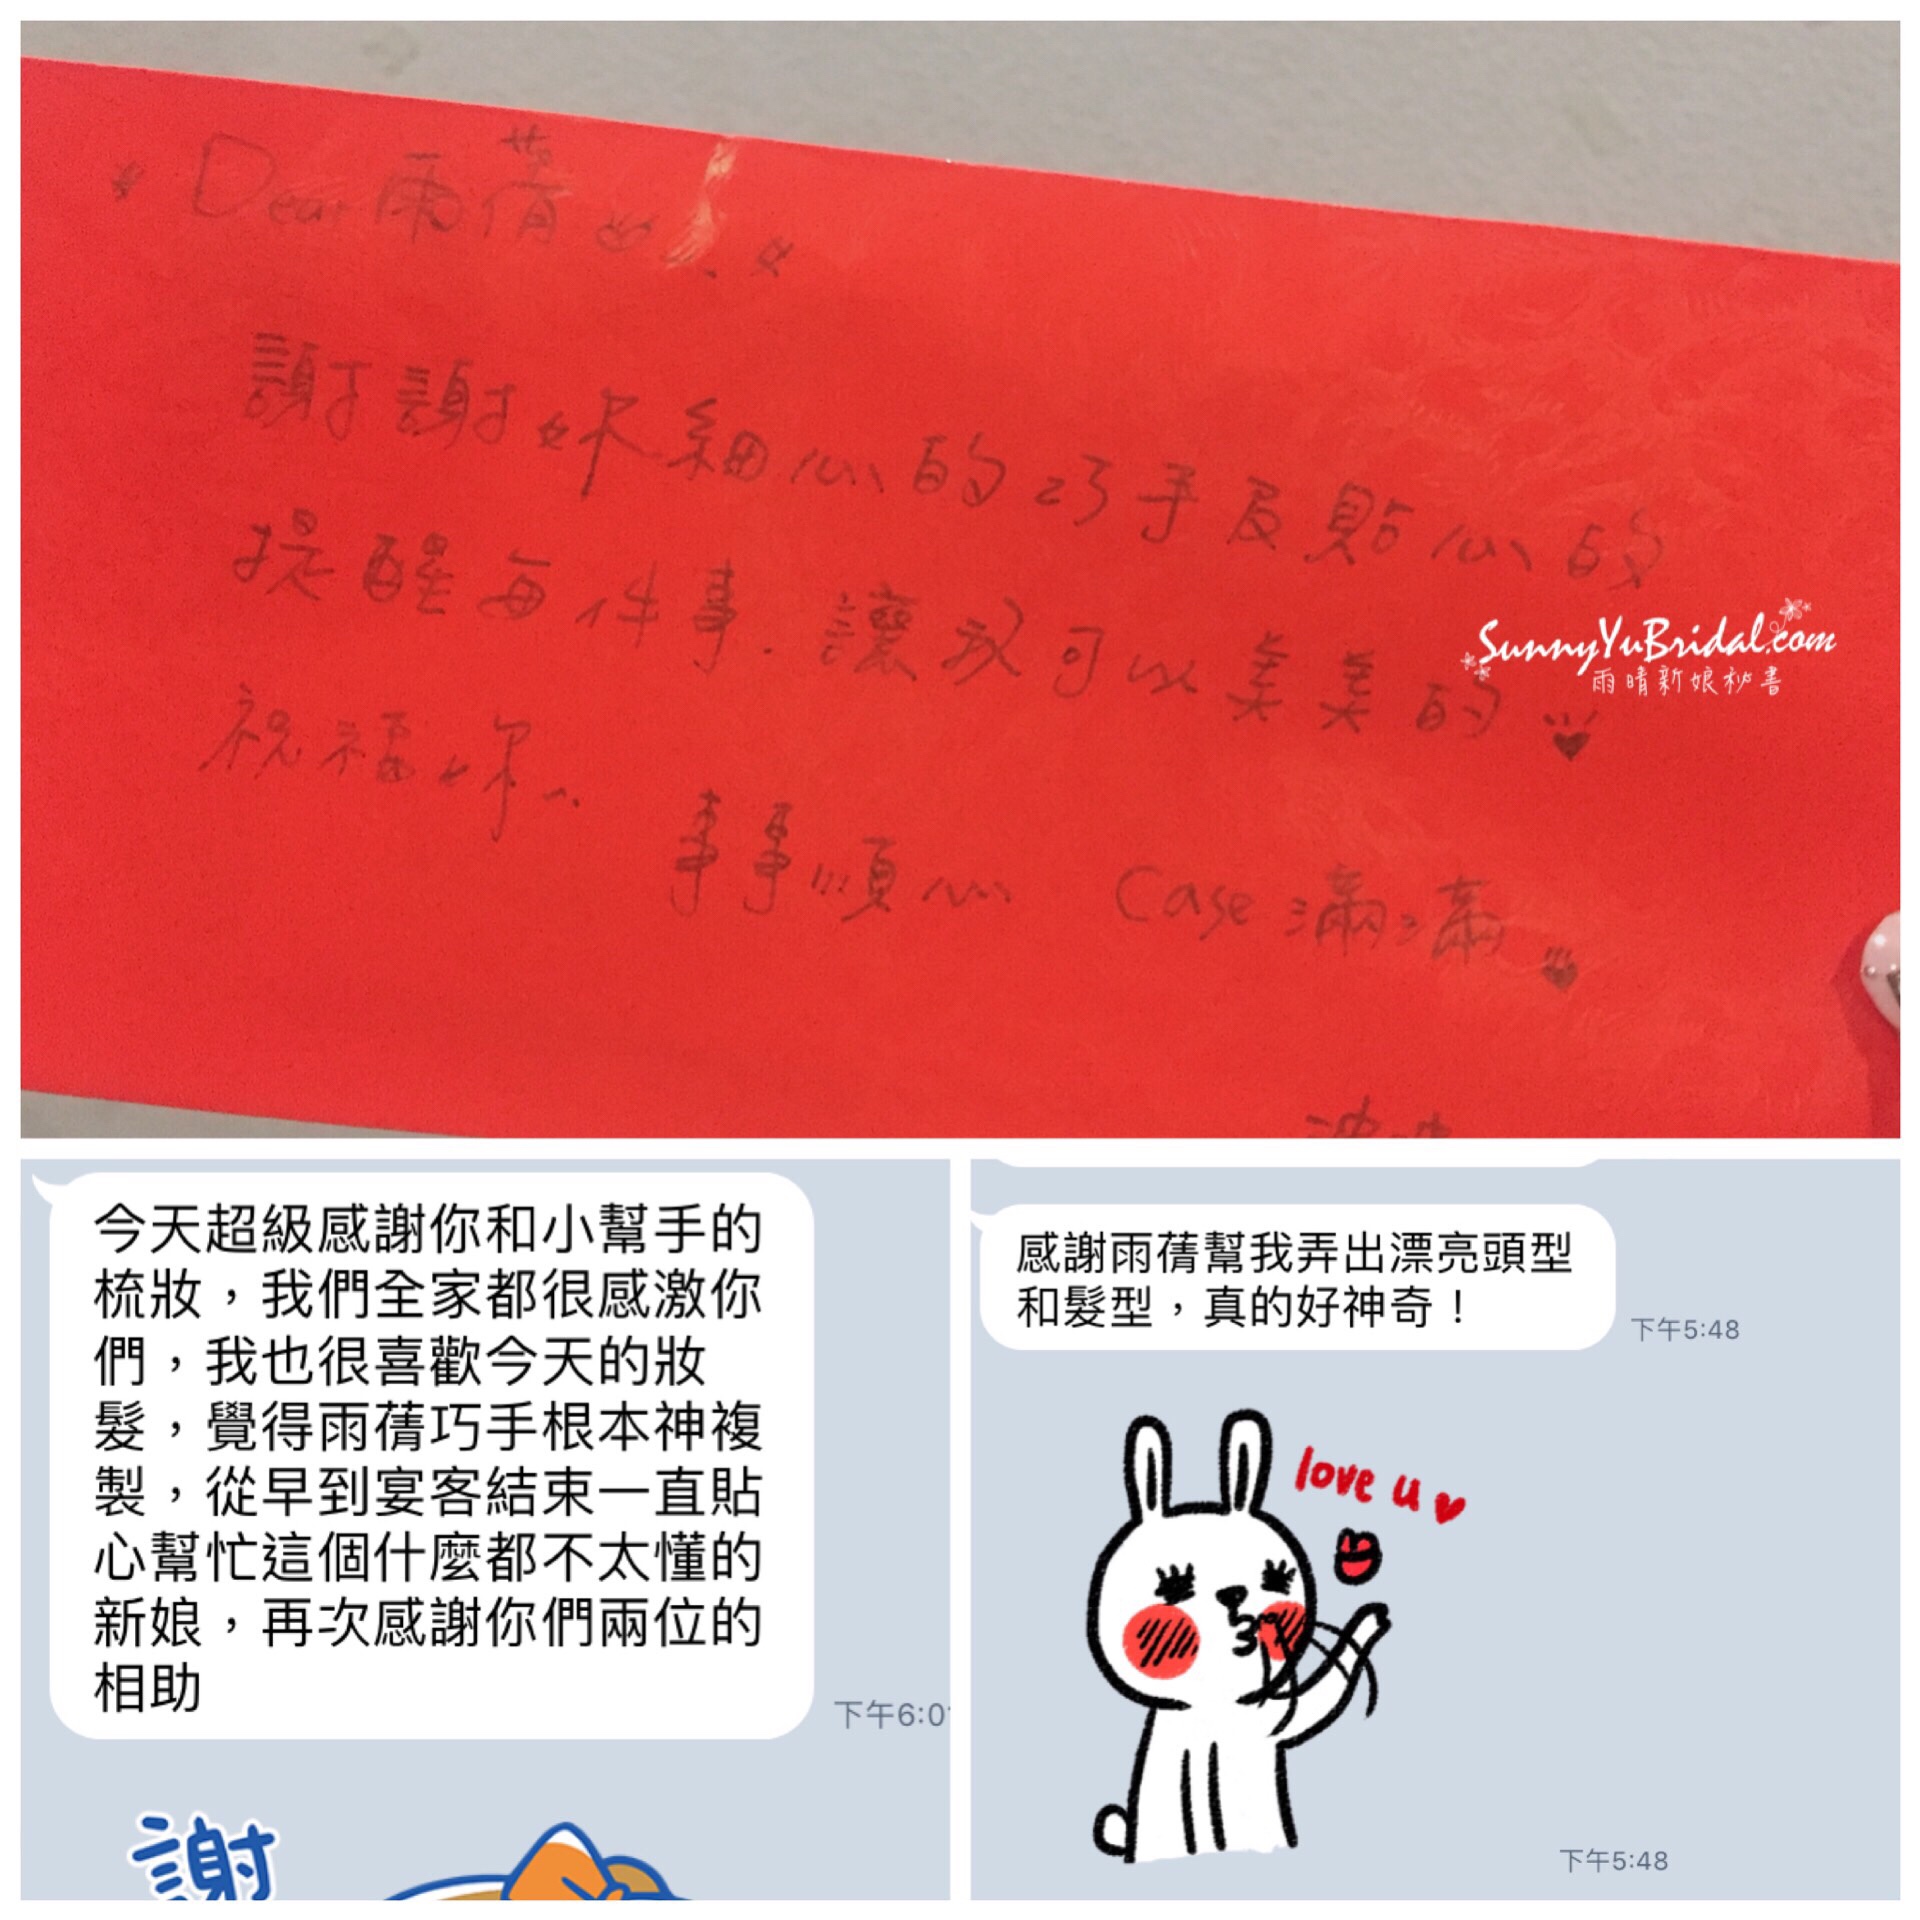 Dear 雨蒨
謝謝妳細心的巧手及貼心的
提醒每件事.讓我可以美美的
祝福妳..
事事順心 Case滿滿
SunnyYuBridal.com
雨晴新娘秘書
今天超級感謝你和小幫手的
梳妝，我們全家都很感激你
們，我也很喜歡今天的妝
髮，覺得雨蒨巧手根本神複
製，從早到宴客結束一直貼
心幫忙這個什麼都不太懂的
新娘，再次感謝你們兩位的
相助
下午6:01
謝
感謝雨蒨幫我弄出漂亮頭型
和髮型，真的好神奇！
下午5:48
love u
下午5:48